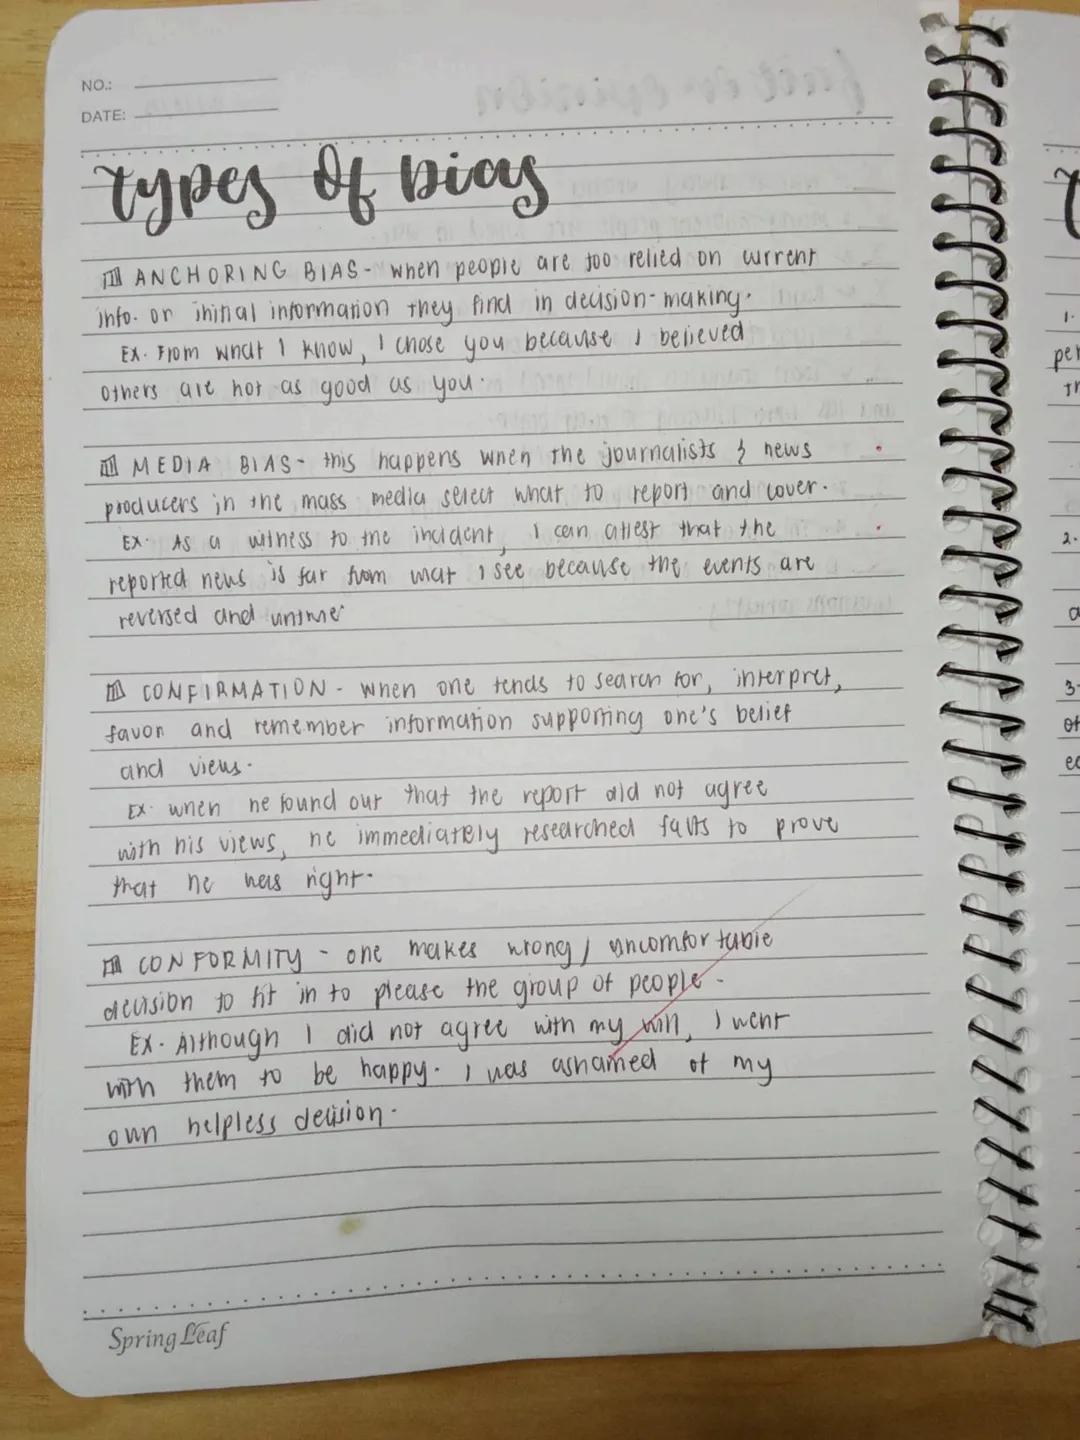 NO.:
DATE:
types of bias
ANCHORING BIAS - when people are too relied on current
info. or initial information they find in decision-making.
Ex. From what I know, I chose you because I believed
others are not as good as you.
MEDIA BIAS - this happens when the journalists & news
producers in the mass media select what to report and cover.
Ex. As a witness to the incident, I can attest that the
reported news is far from what I see because the events are
reversed and untrue.
CONFIRMATION - when one tends to search for, interpret,
favor and remember information supporting one's belief
and views.
Ex. when he found out that the report did not agree
with his views, he immediately researched facts to prove
that he was right.
CONFORMITY - one makes wrong / uncomfortable
decision to fit in to please the group of people.
Ex. Although I did not agree with my will, I went
with them to be happy. I was ashamed of my
own helpless decision.
Spring Leaf
1.
per
2.
a
3-
of